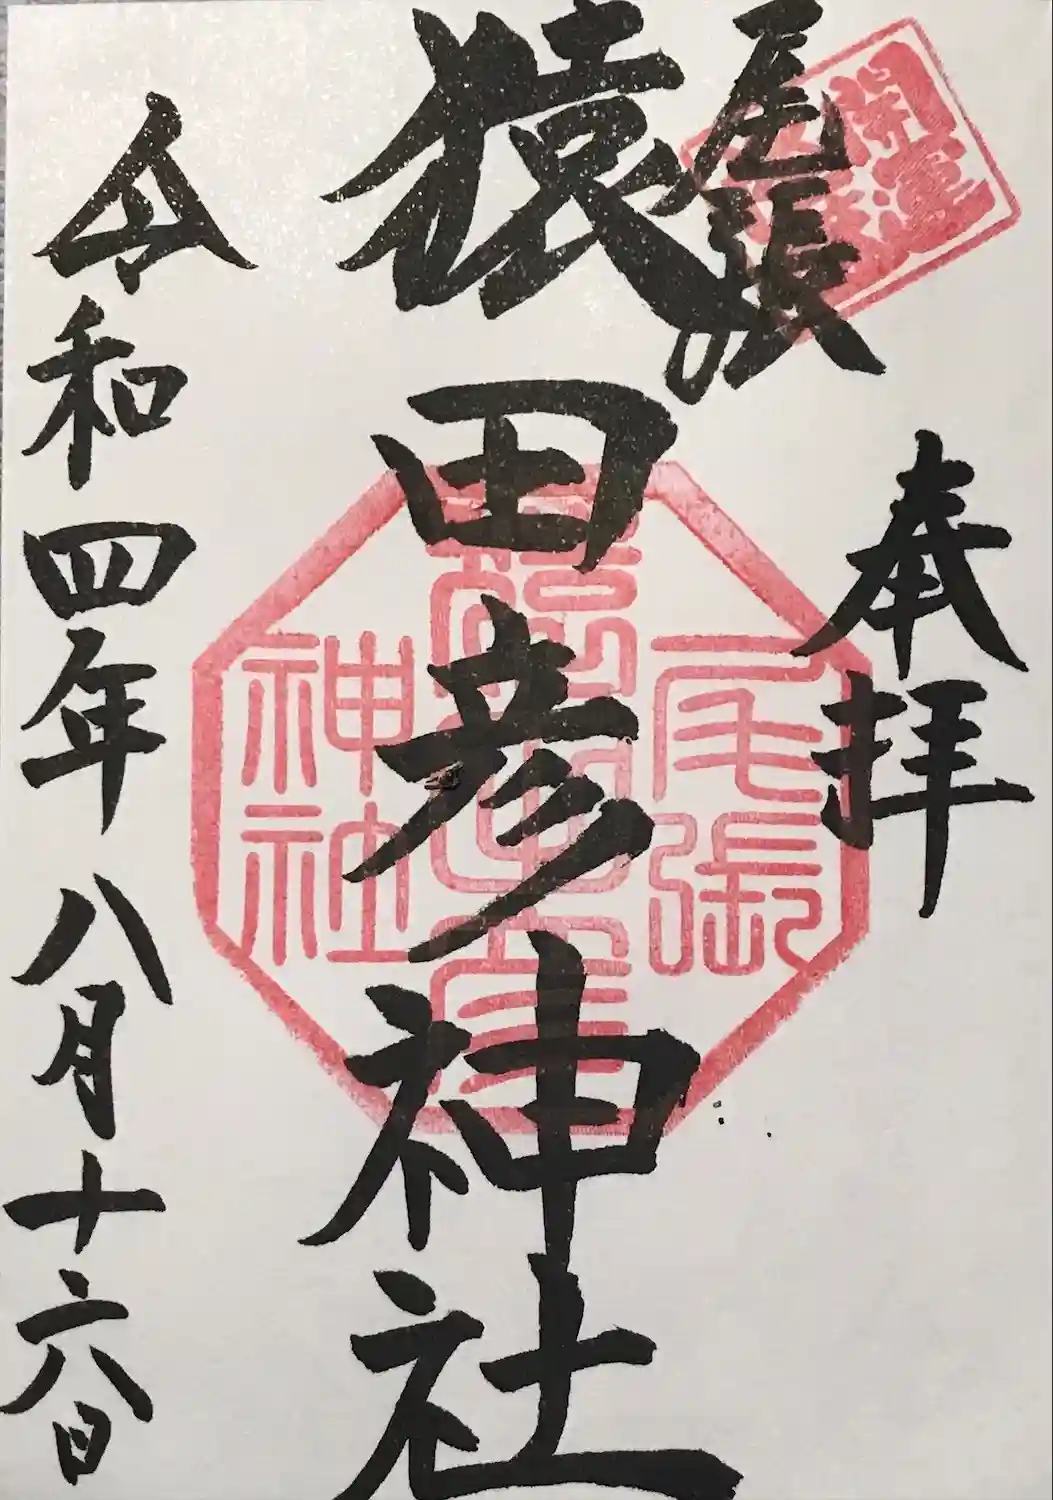 奉拝
開運
尾張
猿田彦神社
尾張
猿田彦
神社
令和四年八月十六日